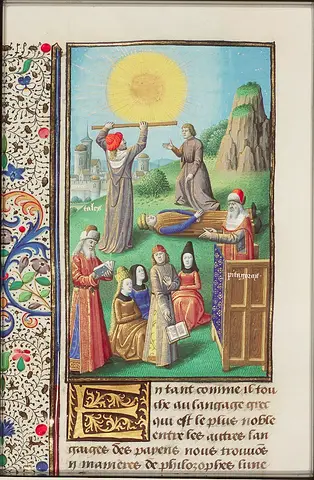 tales
pitagoras
En tant comme il tou
che au langage grec
qui est le plus noble
entre les autres lan
gaiges des payens nous trouuõs
ij manieres de philosophes lune